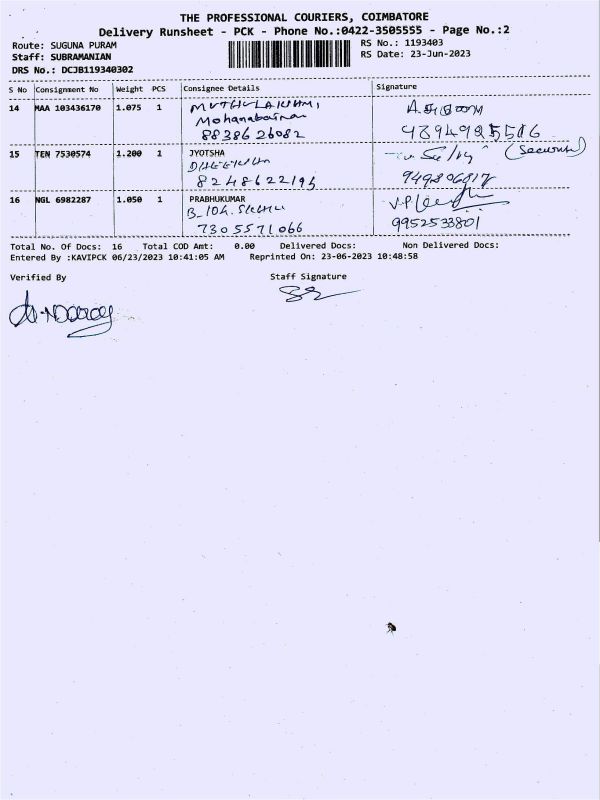 THE PROFESSIONAL COURIERS, COIMBATORE
Delivery Runsheet - PCK - Phone No.:0422-3505555 - Page No.:2
Route: SUGUNA PURAM
RS No.: 1193403
Staff: SUBRAMANIAN
RS Date: 23-Jun-2023
DRS No.: DCJB119340302
S No Consignment No Weight PCS Consignee Details Signature
14 MAA 103436170 1.075 1
8838626082
15 TEN 7530574 1.200 1 JYOTSHA
(Security)
8248622195
16 NGL 6982287 1.050 1 PRABHUKUMAR
7305571066
9952533801
Total No. Of Docs: 16 Total COD Amt: 0.00 Delivered Docs: Non Delivered Docs:
Entered By :KAVIPCK 06/23/2023 10:41:05 AM Reprinted On: 23-06-2023 10:48:58
Verified By Staff Signature